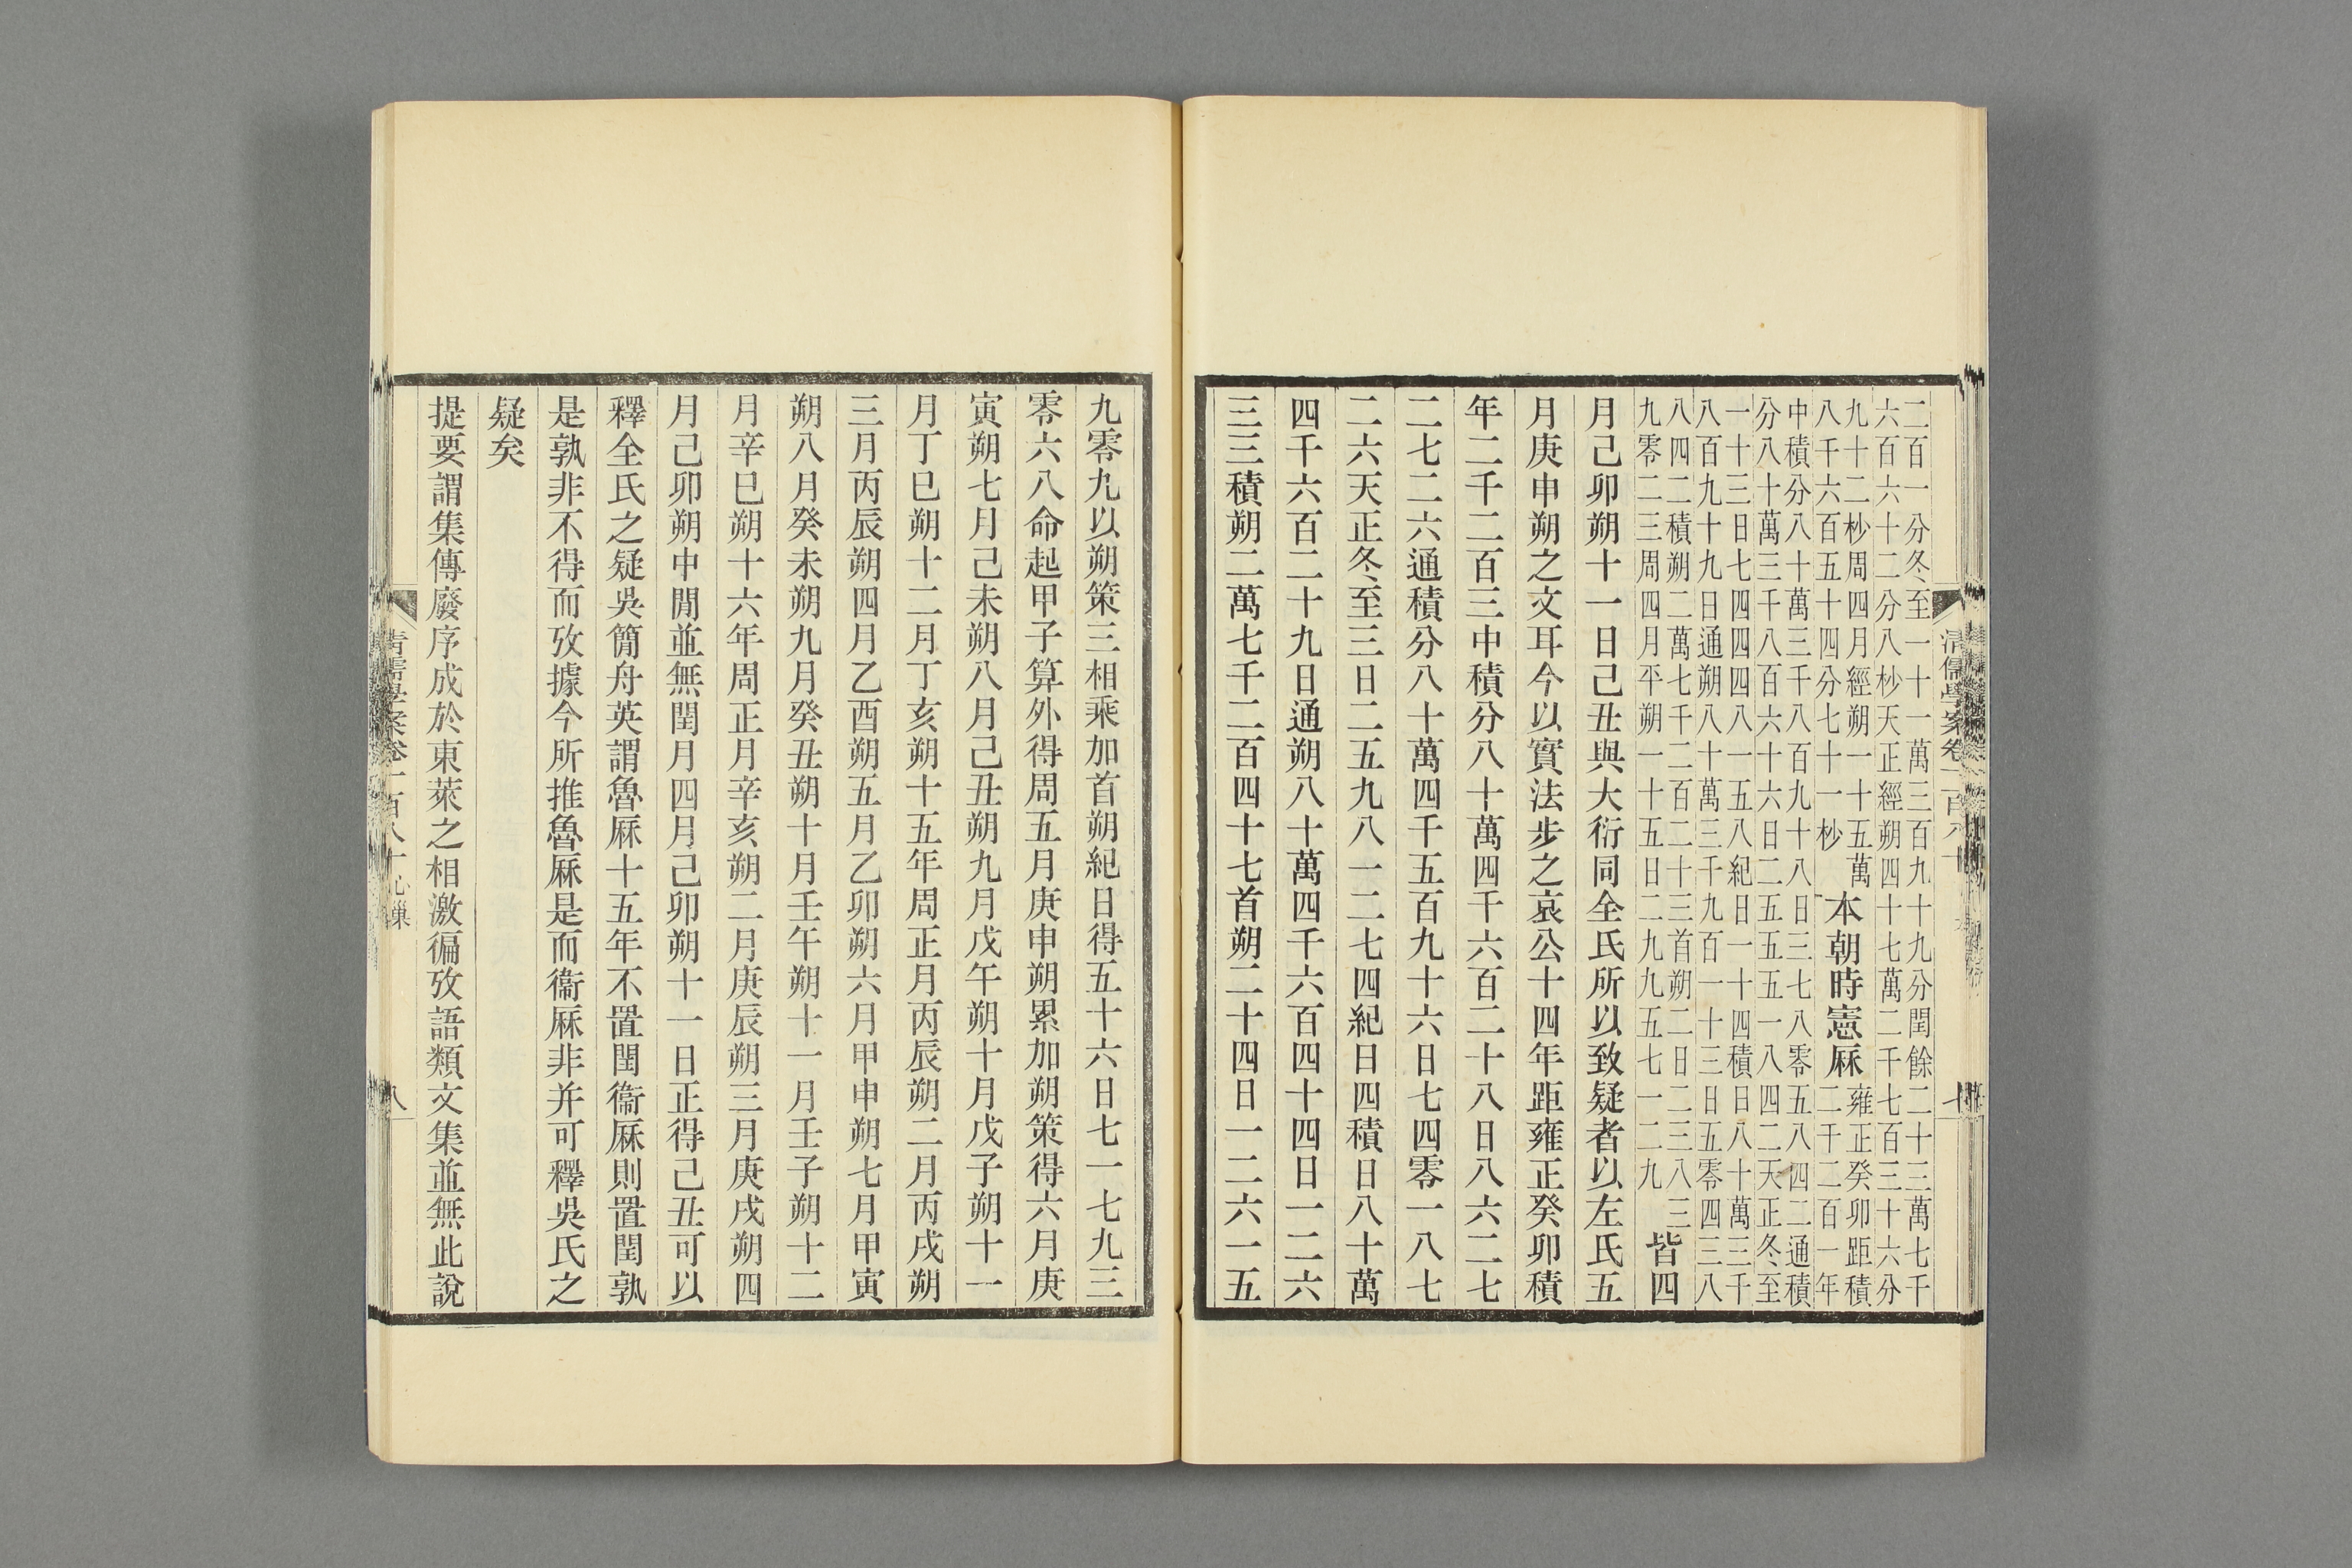 清儒學案卷一百八十
二百一分冬至一十一萬三百九十九分閏餘二十三萬七千
六百六十二分八秒天正經朔四十七萬二千七百三十六分
九十二秒周四月經朔一十五萬
八千六百五十四分七十一秒
本朝時憲厤
雍正癸卯距積
二千二百一年
中積分八十萬三千八百九十八日三七八零五八四二通積
分八十萬三千八百六十六日二五五五一八四二天正冬至
一十三日七四四四八一五八紀日一十四積日八十萬三千
八百九十九日通朔八十萬三千九百一十三日五零四三八
八四二積朔二萬七千二百二十三首朔二日二三八三
九零二三周四月平朔一十五日二九九五七一二九
皆四
月己卯朔十一日己丑與大衍同全氏所以致疑者以左氏五
月庚申朔之文耳今以實法步之哀公十四年距雍正癸卯積
年二千二百三中積分八十萬四千六百二十八日八六二七
二七二六通積分八十萬四千五百九十六日七四零一八七
二六天正冬至三日二五九八一二七四紀日四積日八十萬
四千六百二十九日通朔八十萬四千六百四十四日一二六
三三積朔二萬七千二百四十七首朔二十四日一二六一五
九零九以朔策三相乘加首朔紀日得五十六日七一七九三
零六八命起甲子算外得周五月庚申朔累加朔策得六月庚
寅朔七月己未朔八月己丑朔九月戊午朔十月戊子朔十一
月丁巳朔十二月丁亥朔十五年周正月丙辰朔二月丙戌朔
三月丙辰朔四月乙酉朔五月乙卯朔六月甲申朔七月甲寅
朔八月癸未朔九月癸丑朔十月壬午朔十一月壬子朔十二
月辛巳朔十六年周正月辛亥朔二月庚辰朔三月庚戌朔四
月己卯朔中閒並無閏月四月己卯朔十一日正得己丑可以
釋全氏之疑吳簡舟英謂魯厤十五年不置閏衞厤則置閏孰
是孰非不得而攷據今所推魯厤是而衞厤非并可釋吳氏之
疑矣
提要謂集傳廢序成於東萊之相激徧攷語類文集並無此說
清儒學案卷一百八十
心巢
八